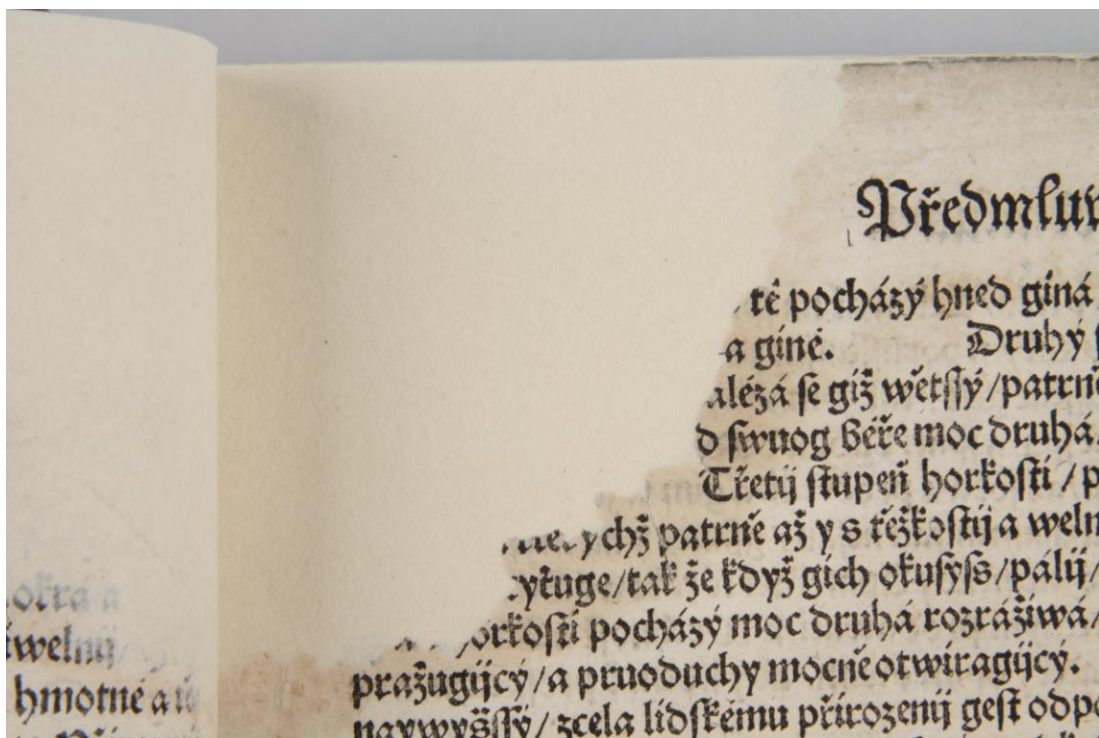 hmotné a
Předmluv
té pocházý hned giná
a giné. Druhý
se giž wětſſý/patrně
ſwuog béře moc druhá.
Třetij ſtupeň horkoſti/
patrně až y s těžkoſtij a
tak že když gich okuſyſs/pálij/
pocházý moc druhá rozrážiwá/
pražugijcý/a pruoduchy mocně otwiragijcý.
naywyšſſý/zcela lidſkému přirozenij geſt